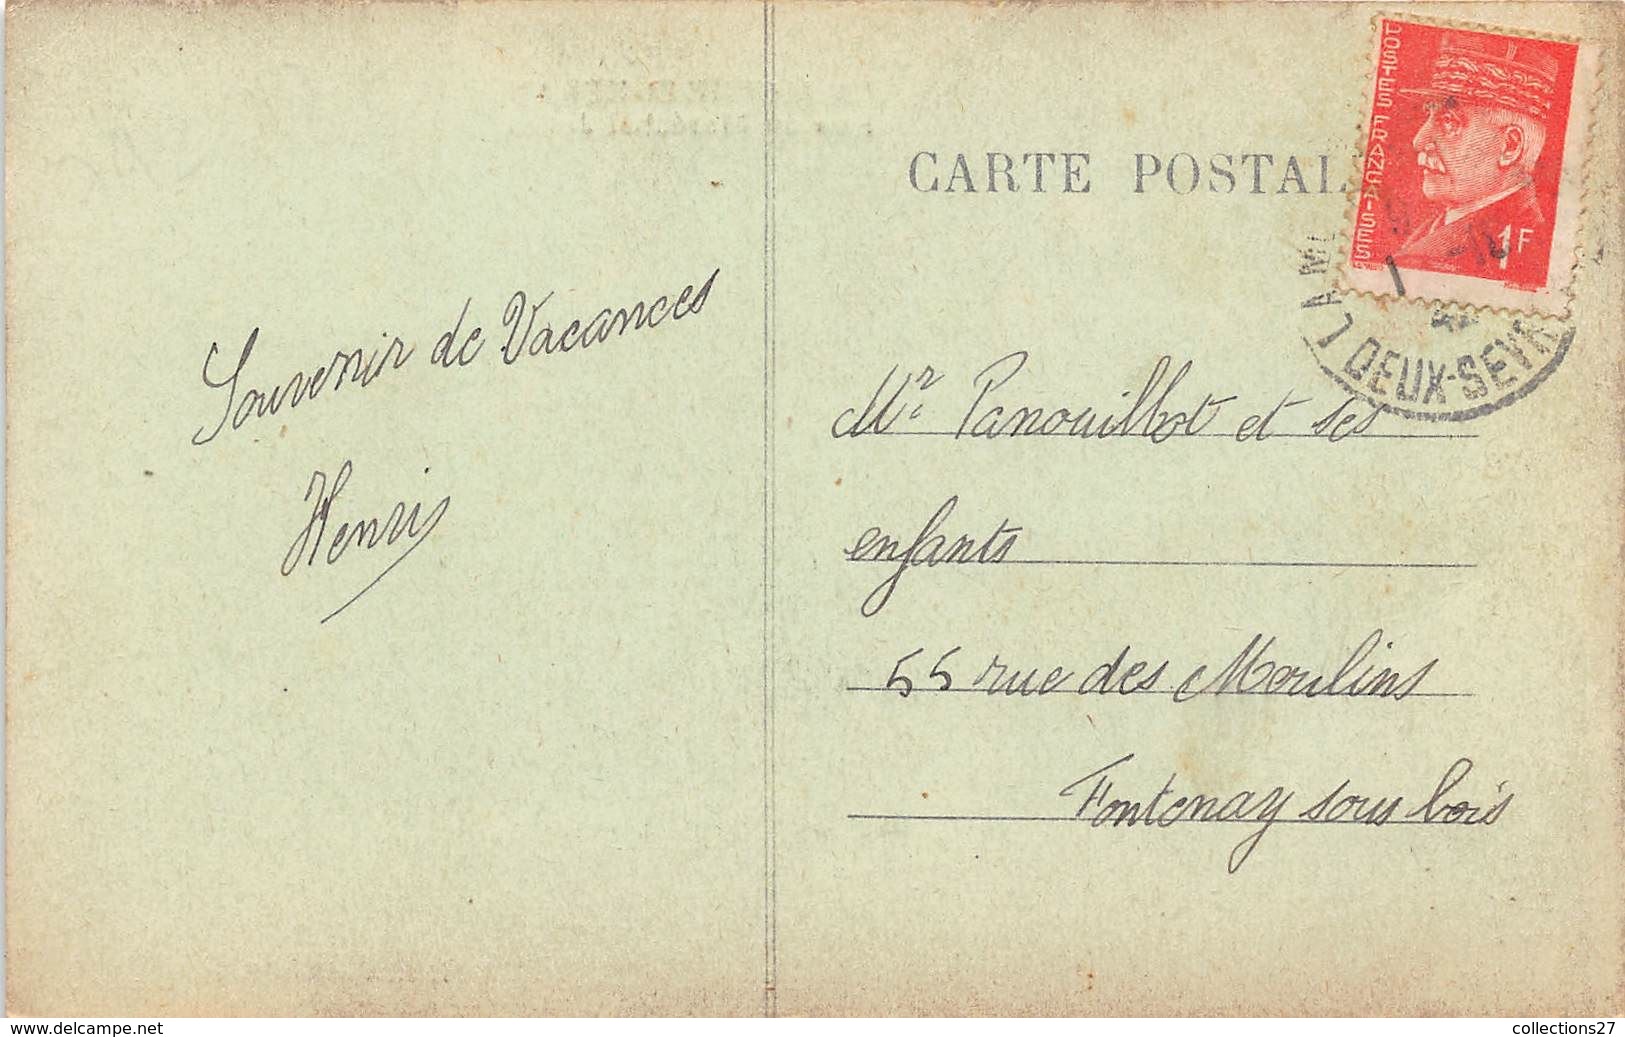 CARTE POSTAL
POSTES FRANÇAISES
1F
DEUX-SEVR
Souvenir de Vacances
Henri
Mr Panouillot et ses
enfants
55 rue des Moulins
Fontenay sous bois
www.delcampe.net
collections27